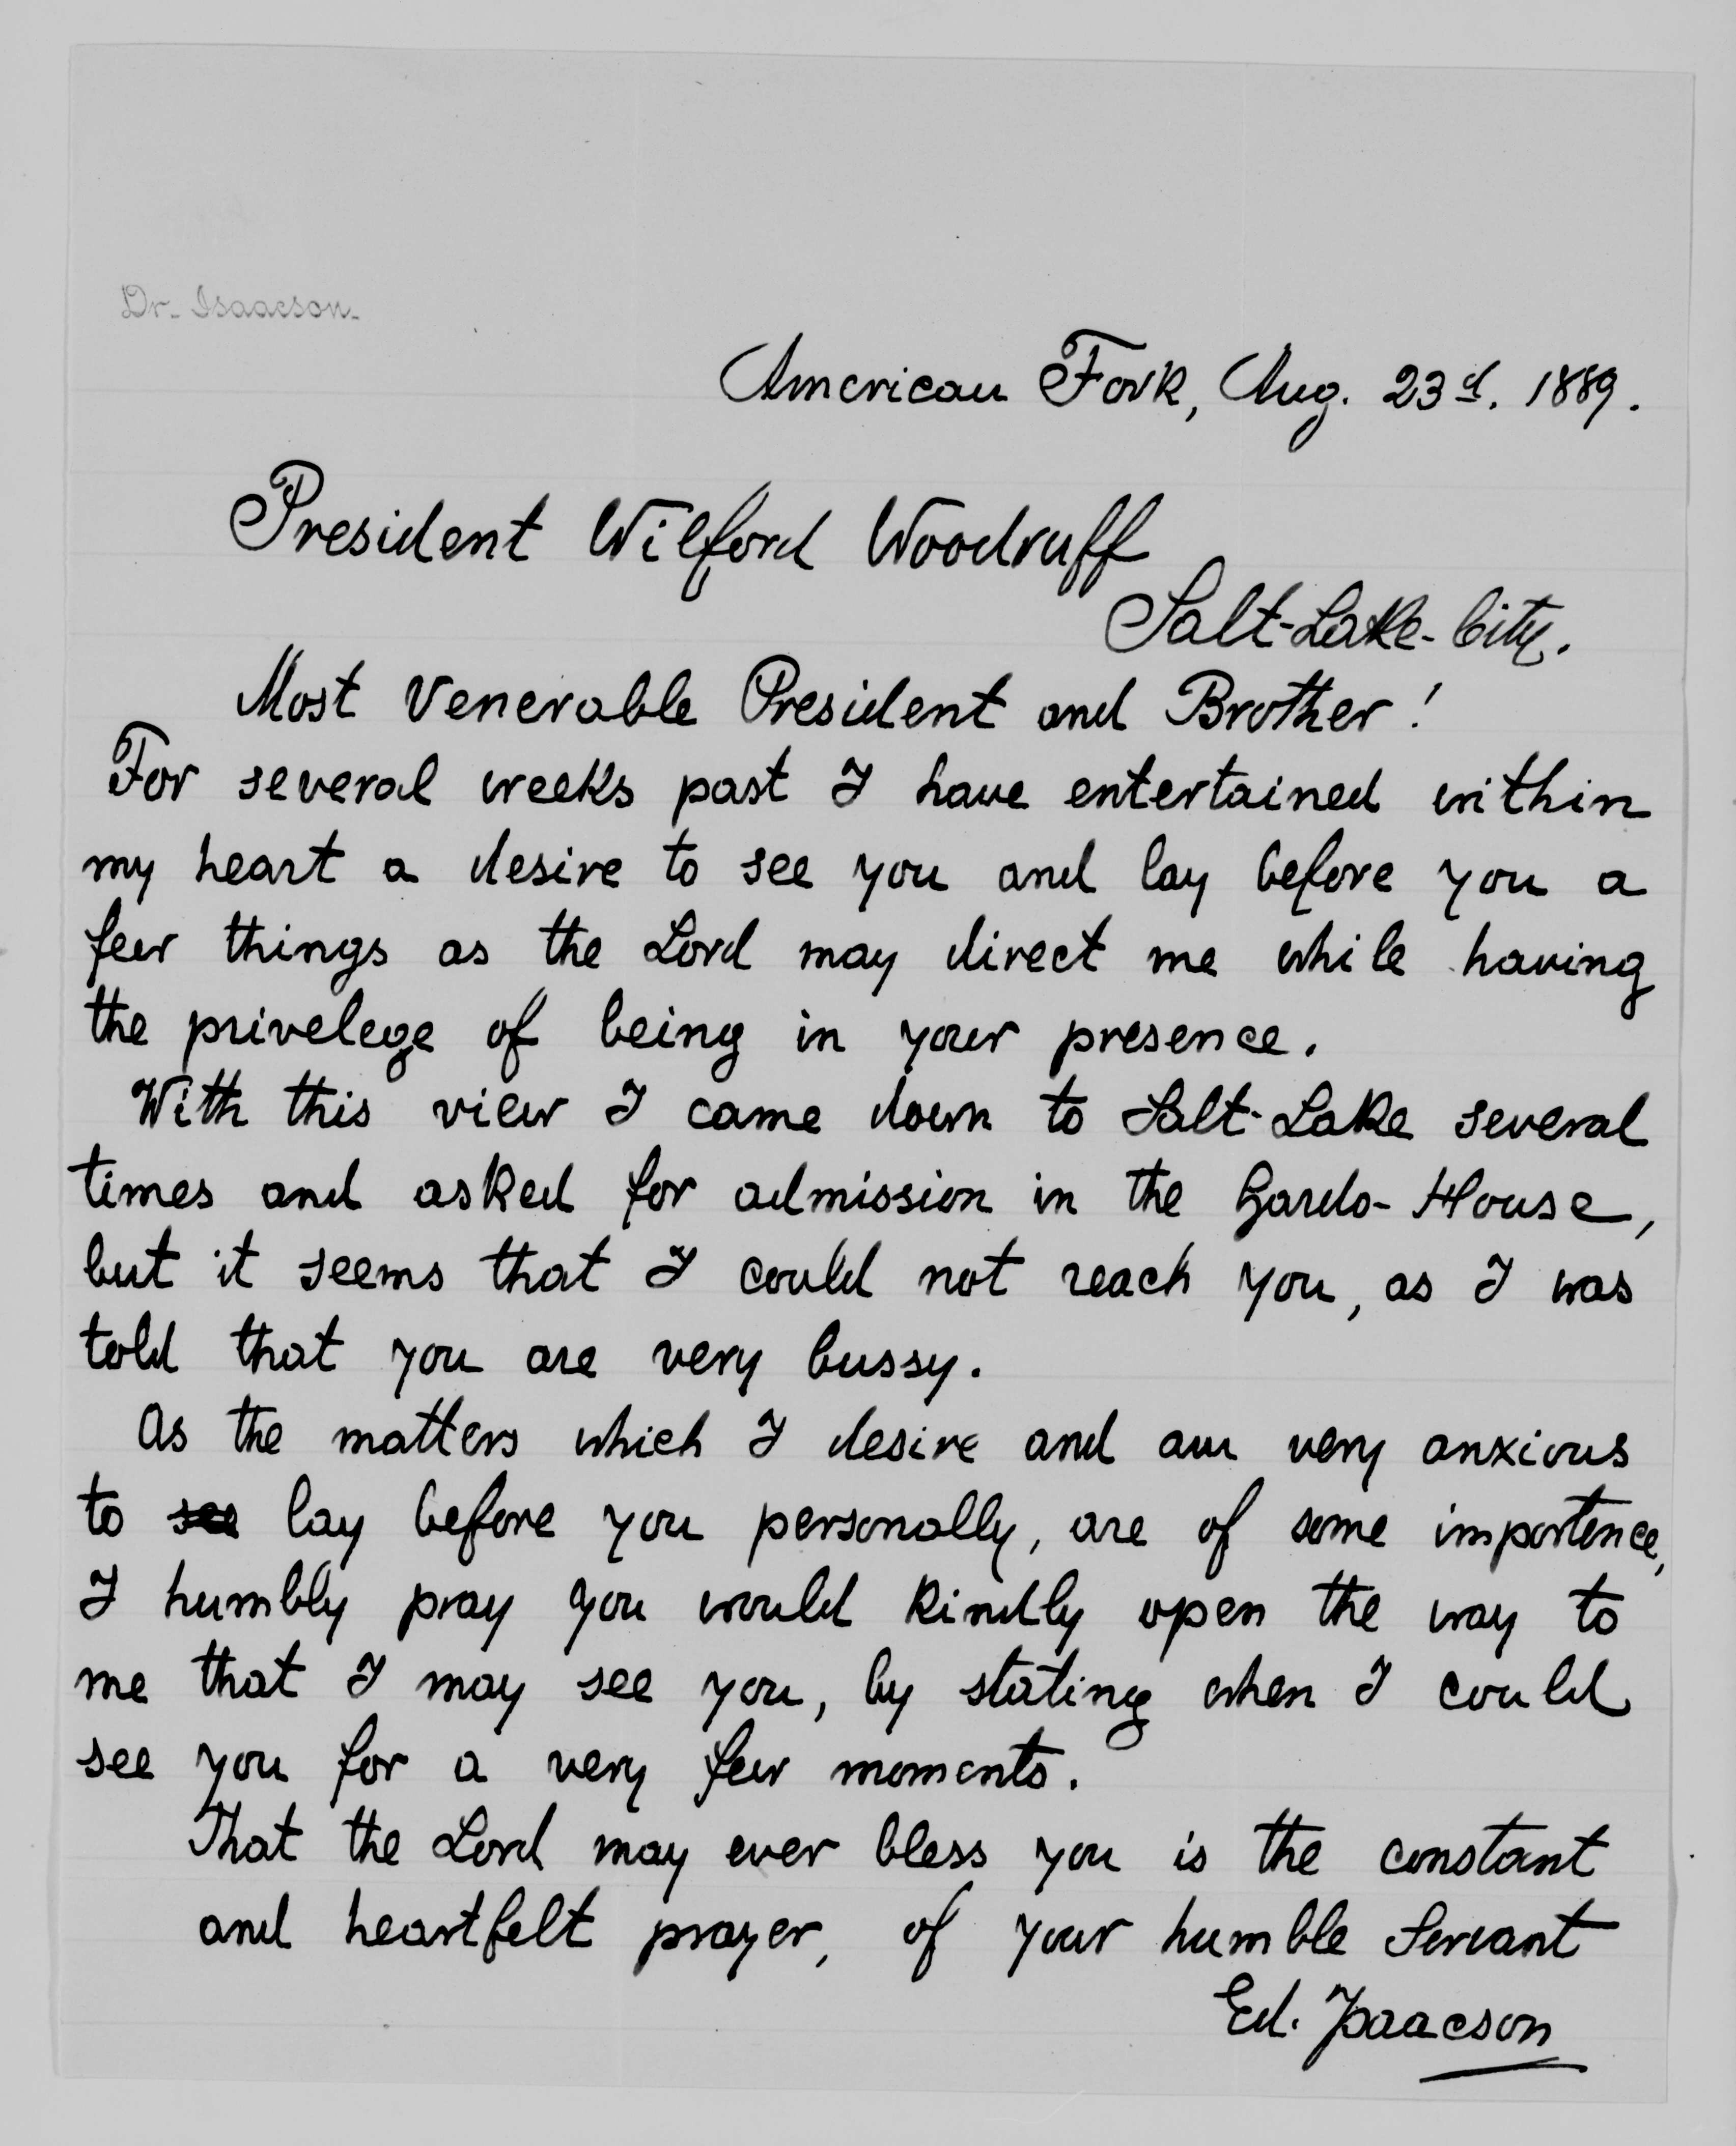 Dr. Isaacson.
American Fork, Aug. 23d. 1889.
President Wilford Woodruff
Salt-Lake-City.
Most Venerable President and Brother!
For several weeks past I have entertained within
my heart a desire to see you and lay before you a
few things as the Lord may direct me while having
the privelege of being in your presence.
With this view I came down to Salt-Lake several
times and asked for admission in the Gardo-House,
but it seems that I could not reach you, as I was
told that you are very bussy.
As the matters which I desire and am very anxious
to see lay before you personally, are of some importence,
I humbly pray you would kindly open the way to
me that I may see you, by stating when I could
see you for a very few moments.
That the Lord may ever bless you is the constant
and heartfelt prayer, of your humble Servant
Ed. Isaacson